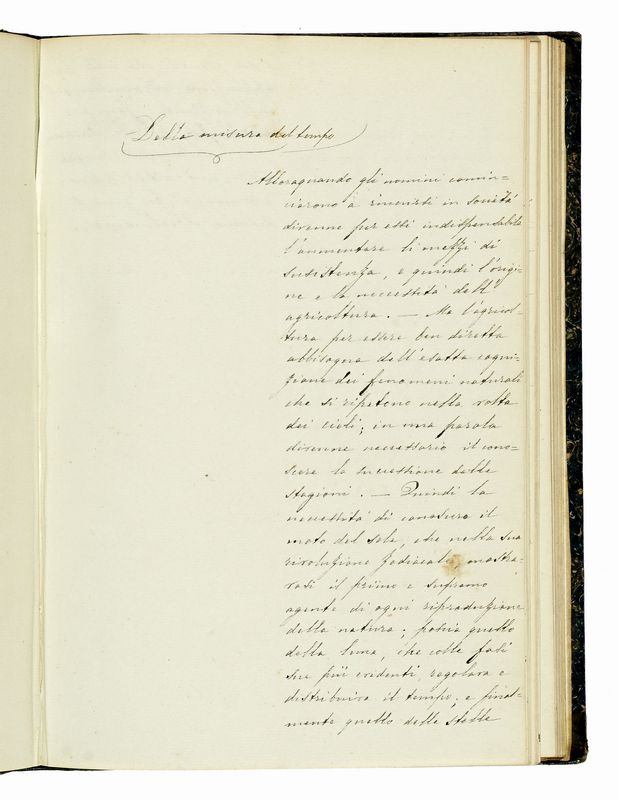 Della misura del tempo
Alloraquando gli uomini comin=
ciarono a riunirsi in società
divenne per essi indispensabile
l'aumentare li mezzi di
susistenza, e quindi l'origi=
ne e la necessità dell'
agricoltura. — Ma l'agricol=
tura per essere ben diretta
abbisogna dell'esatta cogni=
zione dei fenomeni naturali
che si ripetono nella volta
dei cieli; in una parola
divenne necessario il cono=
scere la successione delle
stagioni. — Quindi la
necessità di conoscere il
moto del sole, che nella sua
rivoluzione zodiacale, mostra=
vasi il primo e supremo
agente di ogni riproduzione
della natura; poscia quello
della luna, che colle fasi
sue più evidenti, regolava e
distribuiva il tempo; e final=
mente quello delle stelle